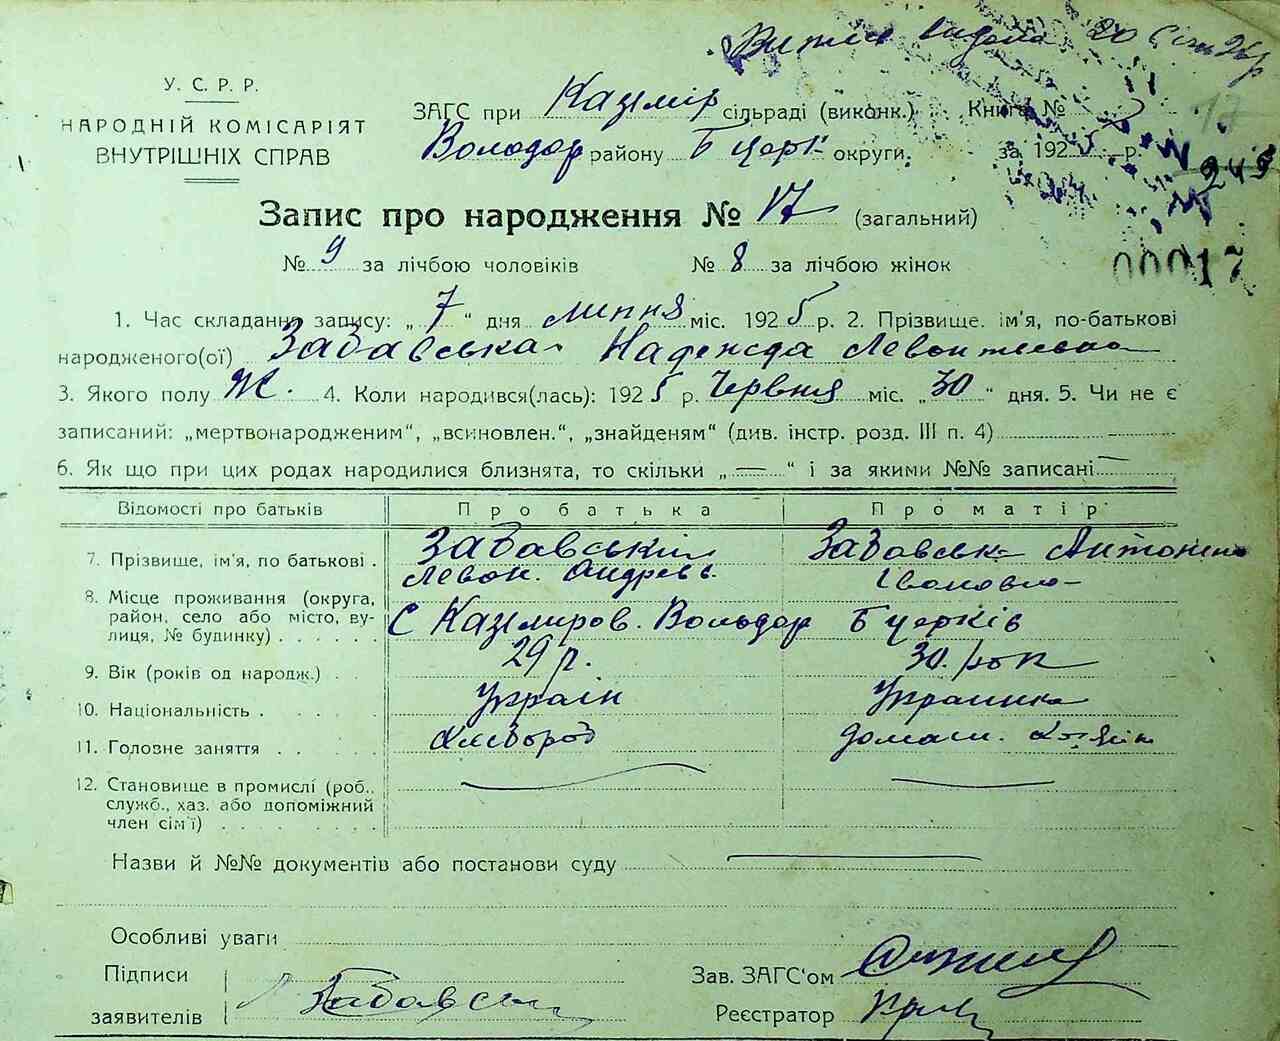 Витяг видано 20
У. С. Р. Р.
НАРОДНІЙ КОМІСАРІЯТ
ВНУТРІШНІХ СПРАВ
ЗАГС при Казмір сільраді (виконк.) Книга №
Володар району Б церк округи, за 1925 р.
249
Запис про народження № 17 (загальний)
№ 9 за лічбою чоловіків № 8 за лічбою жінок
00017
1. Час складання запису: „ 7 “ дня липня міс. 1925 р. 2. Прізвище, ім'я, по-батькові
народженого(ої) Забавська Надежда Левонтьевна
3. Якого полу Ж. 4. Коли народився(лась): 1925 р. Червня міс. „ 30 “ дня. 5. Чи не є
записаний: „мертвонародженим“, „всиновлен.“, „знайденям“ (див. інстр. розд. III п. 4)
6. Як що при цих родах народилися близнята, то скільки „ — “ і за якими №№ записані —
Відомості про батьків Про батька Про матір
7. Прізвище, ім'я, по батькові . Забавський Забавськ Антонина
Левон. Андреев. Івановна
8. Місце проживання (округа,
район, село або місто, ву-
лиця, № будинку) . . . . . . С Казмиров. Володар Б церків
9. Вік (років од народж.) . . 29 р. 30. рок
10. Національність . . . . . Украін Украинка
11. Головне заняття . . . . . Хлебороб домаш. хозяін
12. Становище в промислі (роб.,
служб., хаз. або допоміжний
член сім'ї) . . . . . . . .
Назви й №№ документів або постанови суду
Особливі уваги
Підписи
заявителів Забавск
Зав. ЗАГС'ом
Реєстратор